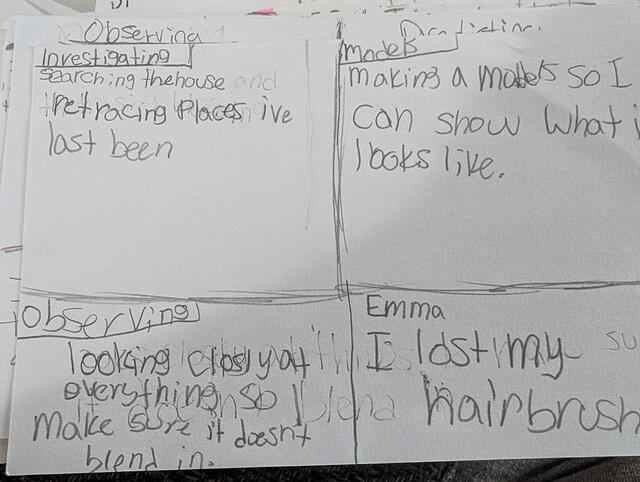 Observing
Investigating
searching the house and
retracing places ive
last been
Models
making a models so I
can show what i
looks like.
Observing
looking closly at
everything so I
make sure it doesn't
blend in.
Emma
I lost my
hairbrush